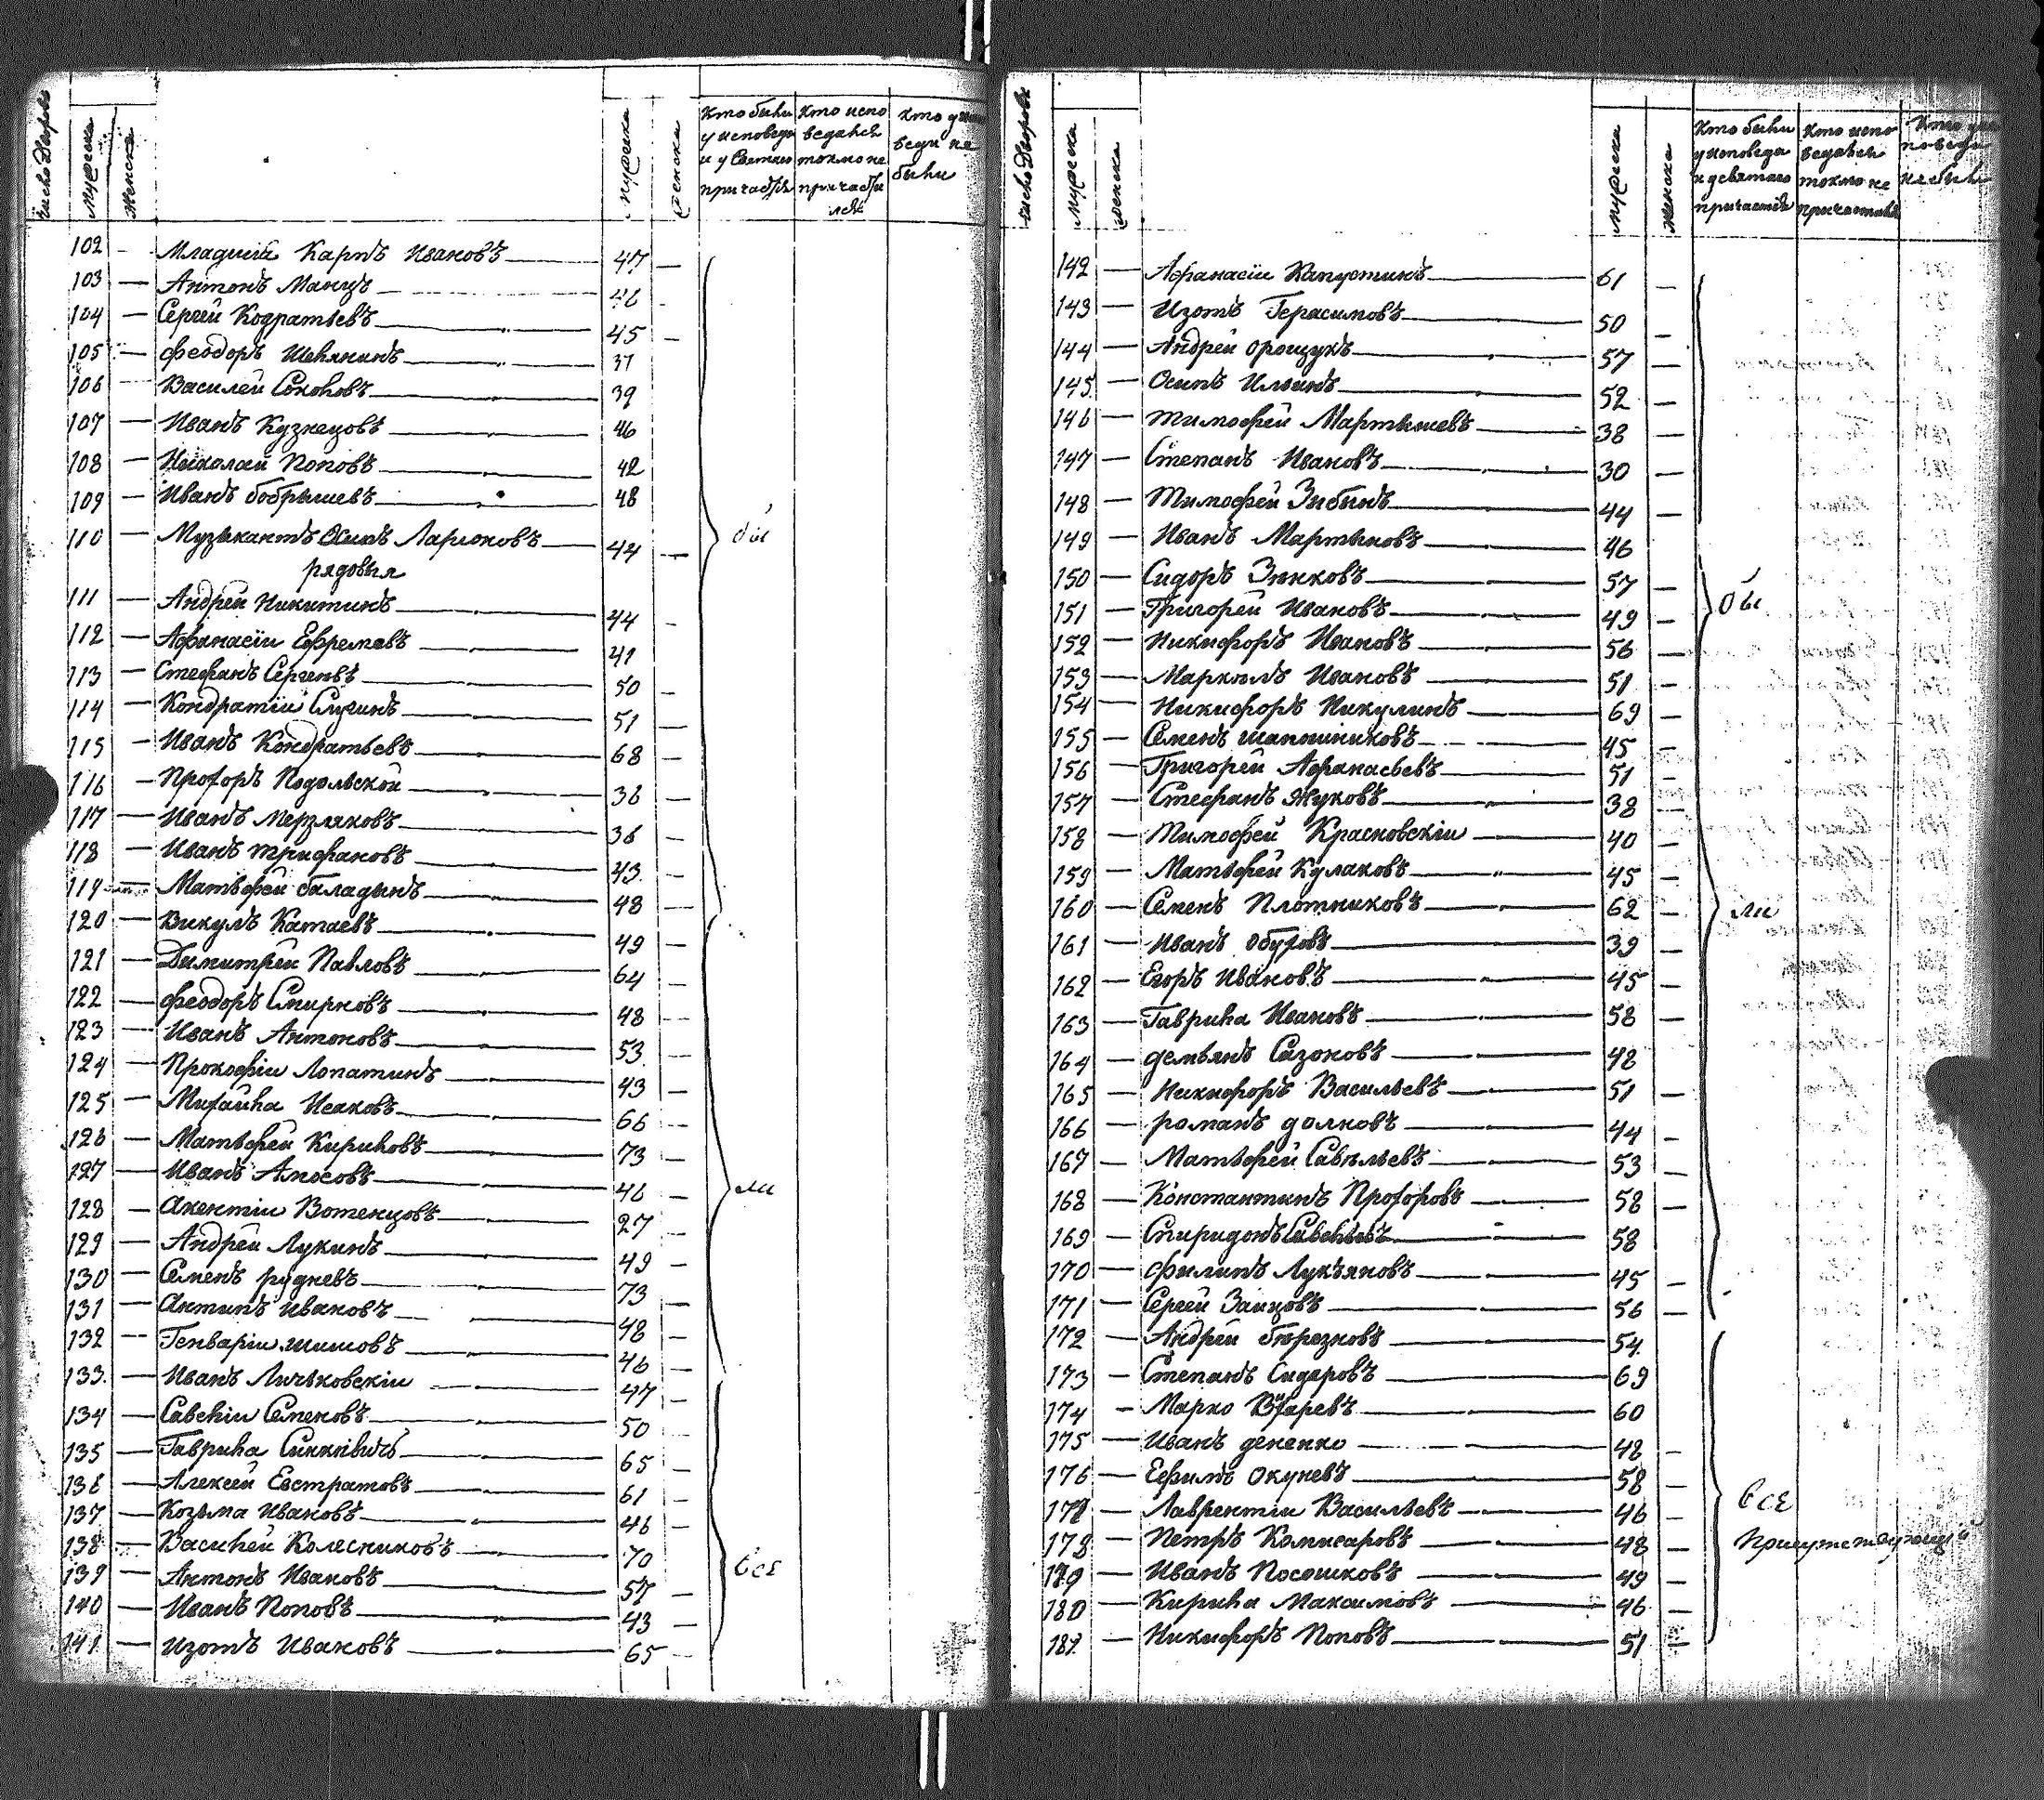 число Дворовъ
мужеска
женска
мужеска
женска
Кто были у исповеди и у Святаго причастія
Кто испо ведався токмо не причасти лся
Кто у ис веди не были
102 — Младшій Карпъ Ивановъ — 47 —
103 — Антонъ Манцъ — 46 —
104 — Сергей Кодратьевъ — 45 —
105 — феодоръ — 37
106 — Василей Соколовъ — 39
107 — Иванъ Кузнецовъ — 46
108 — Николай Поповъ — 42
109 — Иванъ бобрышевъ — 48
110 — Музыкантъ Осипъ Ларионовъ — 44 — бы
рядовыя
111 — Андрей Никитинъ — 44 —
112 — Афанасіи Ефремовъ — 41
113 — Стефанъ Сергеевъ — 50 —
114 — Кондратіи — 51 —
115 — Иванъ Кондратьевъ — 68 —
116 — Прохоръ Подольской — 36 —
117 — Иванъ Мерзляковъ — 36 —
118 — Иванъ трифановъ — 43 —
119 — Матвѣей баладынъ — 48 —
120 — Викулъ Катаевъ — 49 —
121 — Димитрей Павловъ — 64 —
122 — феодоръ Смирновъ — 48 —
123 — Иванъ Антоновъ — 53 —
124 — Прокофіи Лопатинъ — 43 —
125 — Михайла Исаковъ — 66 —
126 — Матвѣей Кириловъ — 73 —
127 — Иванъ Амосовъ — 46 — ли
128 — Акентіи Вотенцовъ — 27 —
129 — Андрей Лукинъ — 49 —
130 — Семенъ рудневъ — 73 —
131 — Антипъ Ивановъ — 48 —
132 — Генваріи шишовъ — 46 —
133 — Иванъ Личковскіи — 47 —
134 — Савеліи Семеновъ — 50 —
135 — Гаврила — 65 —
136 — Алексей Евстратовъ — 61 —
137 — Козьма Ивановъ — 46 —
138 — Василей Колесниковъ — 70
139 — Антонъ Ивановъ — 57 — все
140 — Иванъ Поповъ — 43 —
141 — Изотъ Ивановъ — 65 —
число Дворовъ
мужеска
женска
мужеска
женска
Кто были у исповеди и у святаго причастія
Кто испо ведався токмо не причастився
Кто у ис поведи не были
142 — Афанасіи Капустинъ — 61 —
143 — Изотъ Герасимовъ — 50 —
144 — Андрей Орощукъ — 57 —
145 — Осипъ Ильинъ — 52 —
146 — Тимофей Мартышевъ — 38 —
147 — Степанъ Ивановъ — 30 —
148 — Тимофей Зыбинъ — 44 —
149 — Иванъ Мартыновъ — 46
150 — Сидоръ Зинковъ — 57 — бы
151 — Григорей Ивановъ — 49 —
152 — Никифоръ Ивановъ — 56 —
153 — Маркелъ Ивановъ — 51 —
154 — Никифоръ Никулинъ — 69 —
155 — Семенъ шапошниковъ — 45 —
156 — Григорей Афанасьевъ — 51 —
157 — Стефанъ Жуковъ — 38 —
158 — Тимофей Красновскіи — 40 —
159 — Матвѣей Кулаковъ — 45 —
160 — Семенъ Плотниковъ — 62 — ли
161 — Иванъ Обуховъ — 39 —
162 — Егоръ Ивановъ — 45 —
163 — Гаврила Ивановъ — 58 —
164 — демьянъ Сазоновъ — 48
165 — Никифоръ Васильевъ — 51 —
166 — романъ долновъ — 44 —
167 — Матвѣей Савѣльевъ — 53 —
168 — Константинъ Прохоровъ — 58 —
169 — Спиридонъ Савельевъ — 58
170 — филипъ Лукъяновъ — 45 —
171 — Сергей Заицовъ — 56 —
172 — Андрей бюрезновъ — 54
173 — Степанъ Сидоровъ — 69
174 — Марко — 60
175 — Иванъ дененко — 48 —
176 — Ефимъ Окуневъ — 58 — все
177 — Лаврентіи Васильевъ — 46 —
178 — Петръ Комисаровъ — 48 — Присутствующіи
179 — Иванъ Посошковъ — 49 —
180 — Кирила Максимовъ — 46 —
181 — Никифоръ Поповъ — 51 —